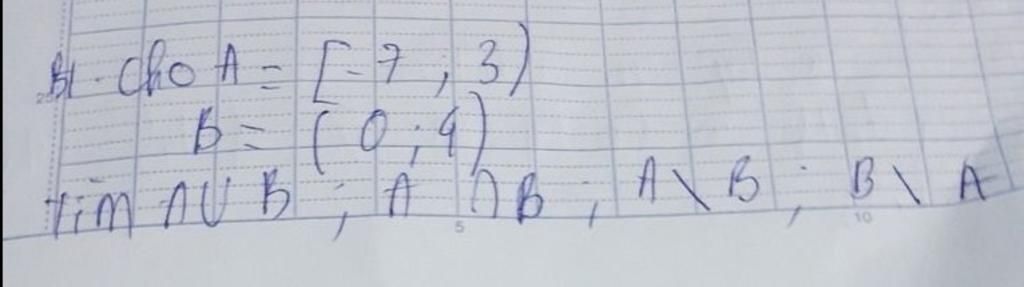 B1. Cho A = [-7; 3)
B = (0; 4)
Tìm A∪B; A∩B; A\B; B\A
5
10